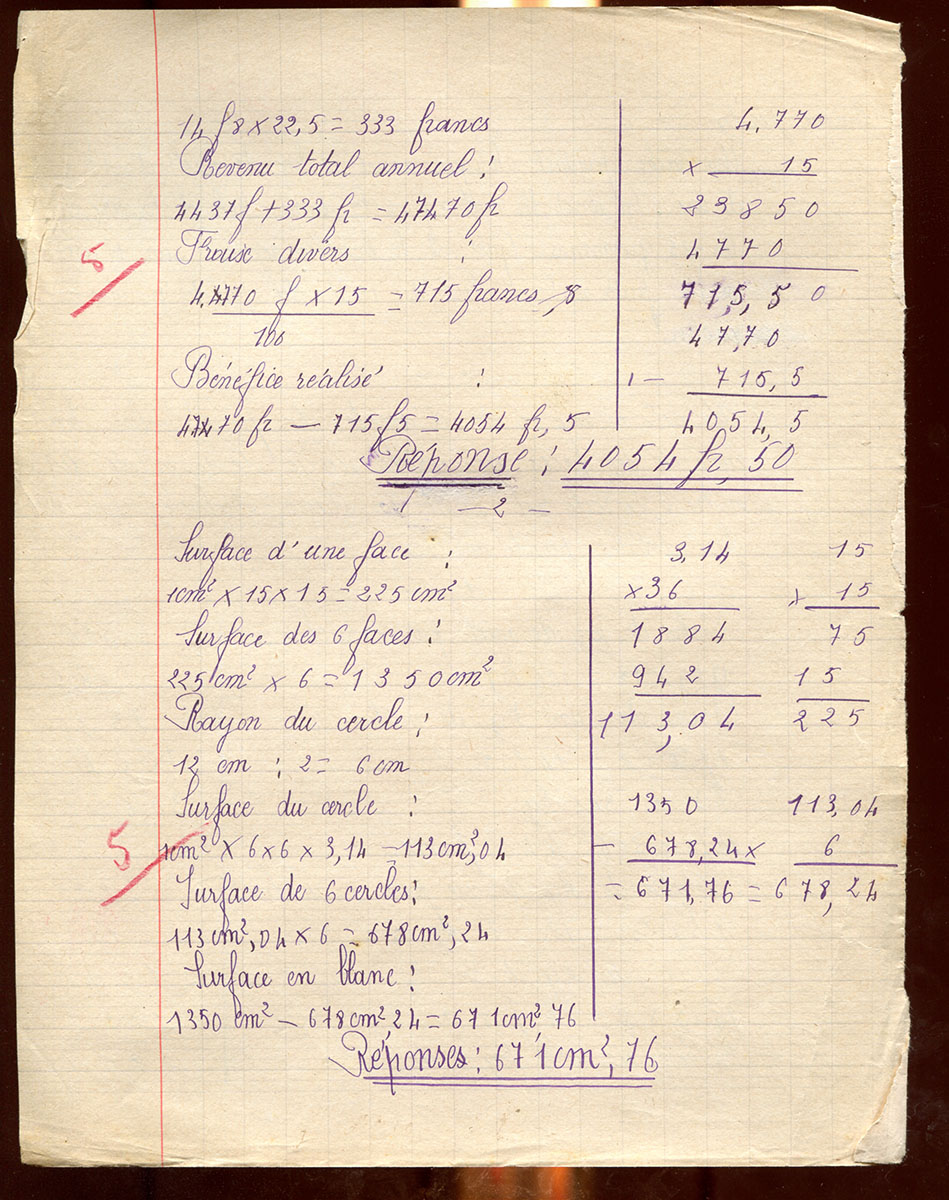 14 f 8 × 22,5 = 333 francs
Revenu total annuel :
4437 f + 333 fr = 47470 fr
divers :
5
4.4770 f × 15 = 715 francs, 8
100
Bénéfice réalisé :
47470 fr — 715 f 5 = 4054 fr, 5
4.770
× 15
23850
4770
715,50
47,70
- 715,5
4054,5
Réponse : 4054 fr, 50
- 2 -
Surface d'une face :
1cm² × 15 × 15 = 225 cm²
Surface des 6 faces :
225 cm² × 6 = 1350 cm²
Rayon du cercle :
12 cm : 2 = 6 cm
Surface du cercle :
5
1cm² × 6 × 6 × 3,14 = 113 cm²,04
Surface de 6 cercles :
113 cm²,04 × 6 = 678 cm²,24
Surface en blanc :
1350 cm² — 678 cm²,24 = 671 cm²,76
3,14
× 36
1884
942
113,04
15
× 15
75
15
225
1350
- 678,24
= 671,76
113,04
× 6
= 678,24
Réponses : 671 cm², 76